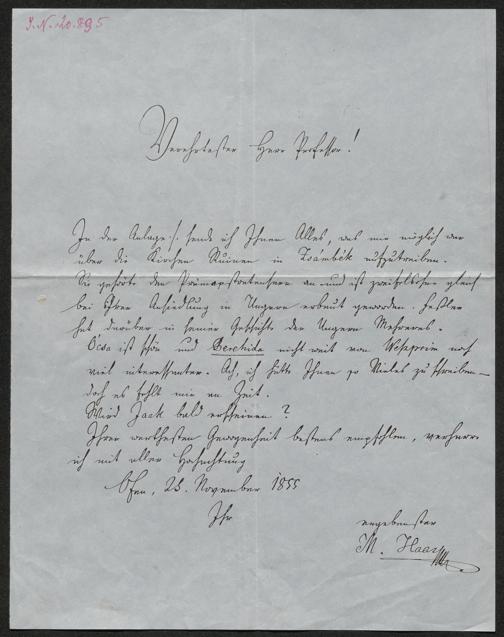 J.N. 120.895
Verehrtester Herr Professor!
In der Anlage ·/. sende ich Ihnen Alles, was mir möglich war
über die Kirchen Ruinen in Zsámbék aufzutreiben.
Sie gehörte den Prämonstratensern an und ist zweifelsohne gleich
bei ihrer Ansiedlung in Ungarn erbaut geworden. Feßler
hat darüber in seiner Geschichte der Ungern Mehreres.
Ócsa ist schön und Berhida nicht weit von Wesprim noch
viel interessanter. Ach, ich hätte Ihnen so Vieles zu schreiben –
doch es fehlt mir an Zeit.
Wird Jack bald erscheinen?
Ihrer werthesten Gewogenheit bestens empfohlen, verharre
ich mit aller Hochachtung
Ofen, 25. November 1855
Ihr
ergebenster
M. Haas